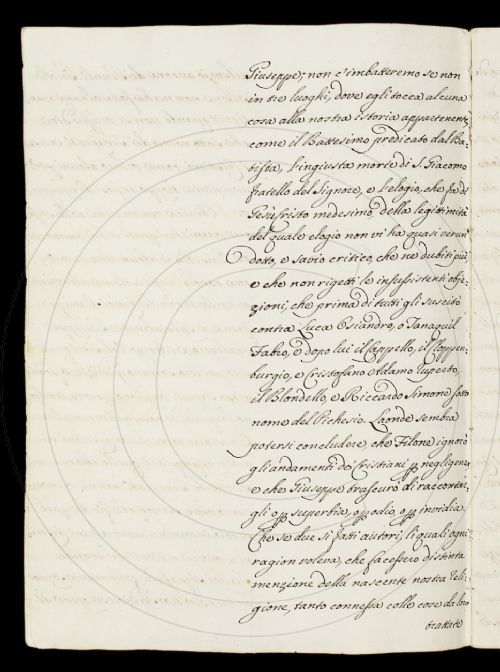 Giuseppe; non c'imbatteremo se non
in tre luoghi, dove egli tocca alcuna
cosa alla nostra istoria appartenente,
come il Battesimo predicato dal Ba-
tista, l'ingiusta morte di S. Giacomo
fratello del Signore, e l'elogio, che fa di
Gesùcristo medesimo, della legittimità
del quale elogio non vi ha quasi verun
dotto, e savio critico, che ne dubiti più,
e che non rigetti le insussistenti obje-
zioni, che prima di tutti gli suscitò
contra Luca Osiandro, o Tanaquil
Fabro, e dopo lui il Cappello, il Cloppen-
burgio, e Cristofano Adamo Ruperto,
il Blondello, e Riccardo Simone sotto
nome del Pichesio. Laonde sembra
potersi concludere, che Filone ignorò
gli andamenti de' Cristiani p negligenza,
e che Giuseppe trascurò di raccontar-
gli o p superbia, o p odio, o p invidia.
Che se due sì fatti autori, li quali ogni
ragion voleva, che facessero distinta
menzione della nascente nostra Reli-
gione, tanto connessa colle cose da loro
trattate